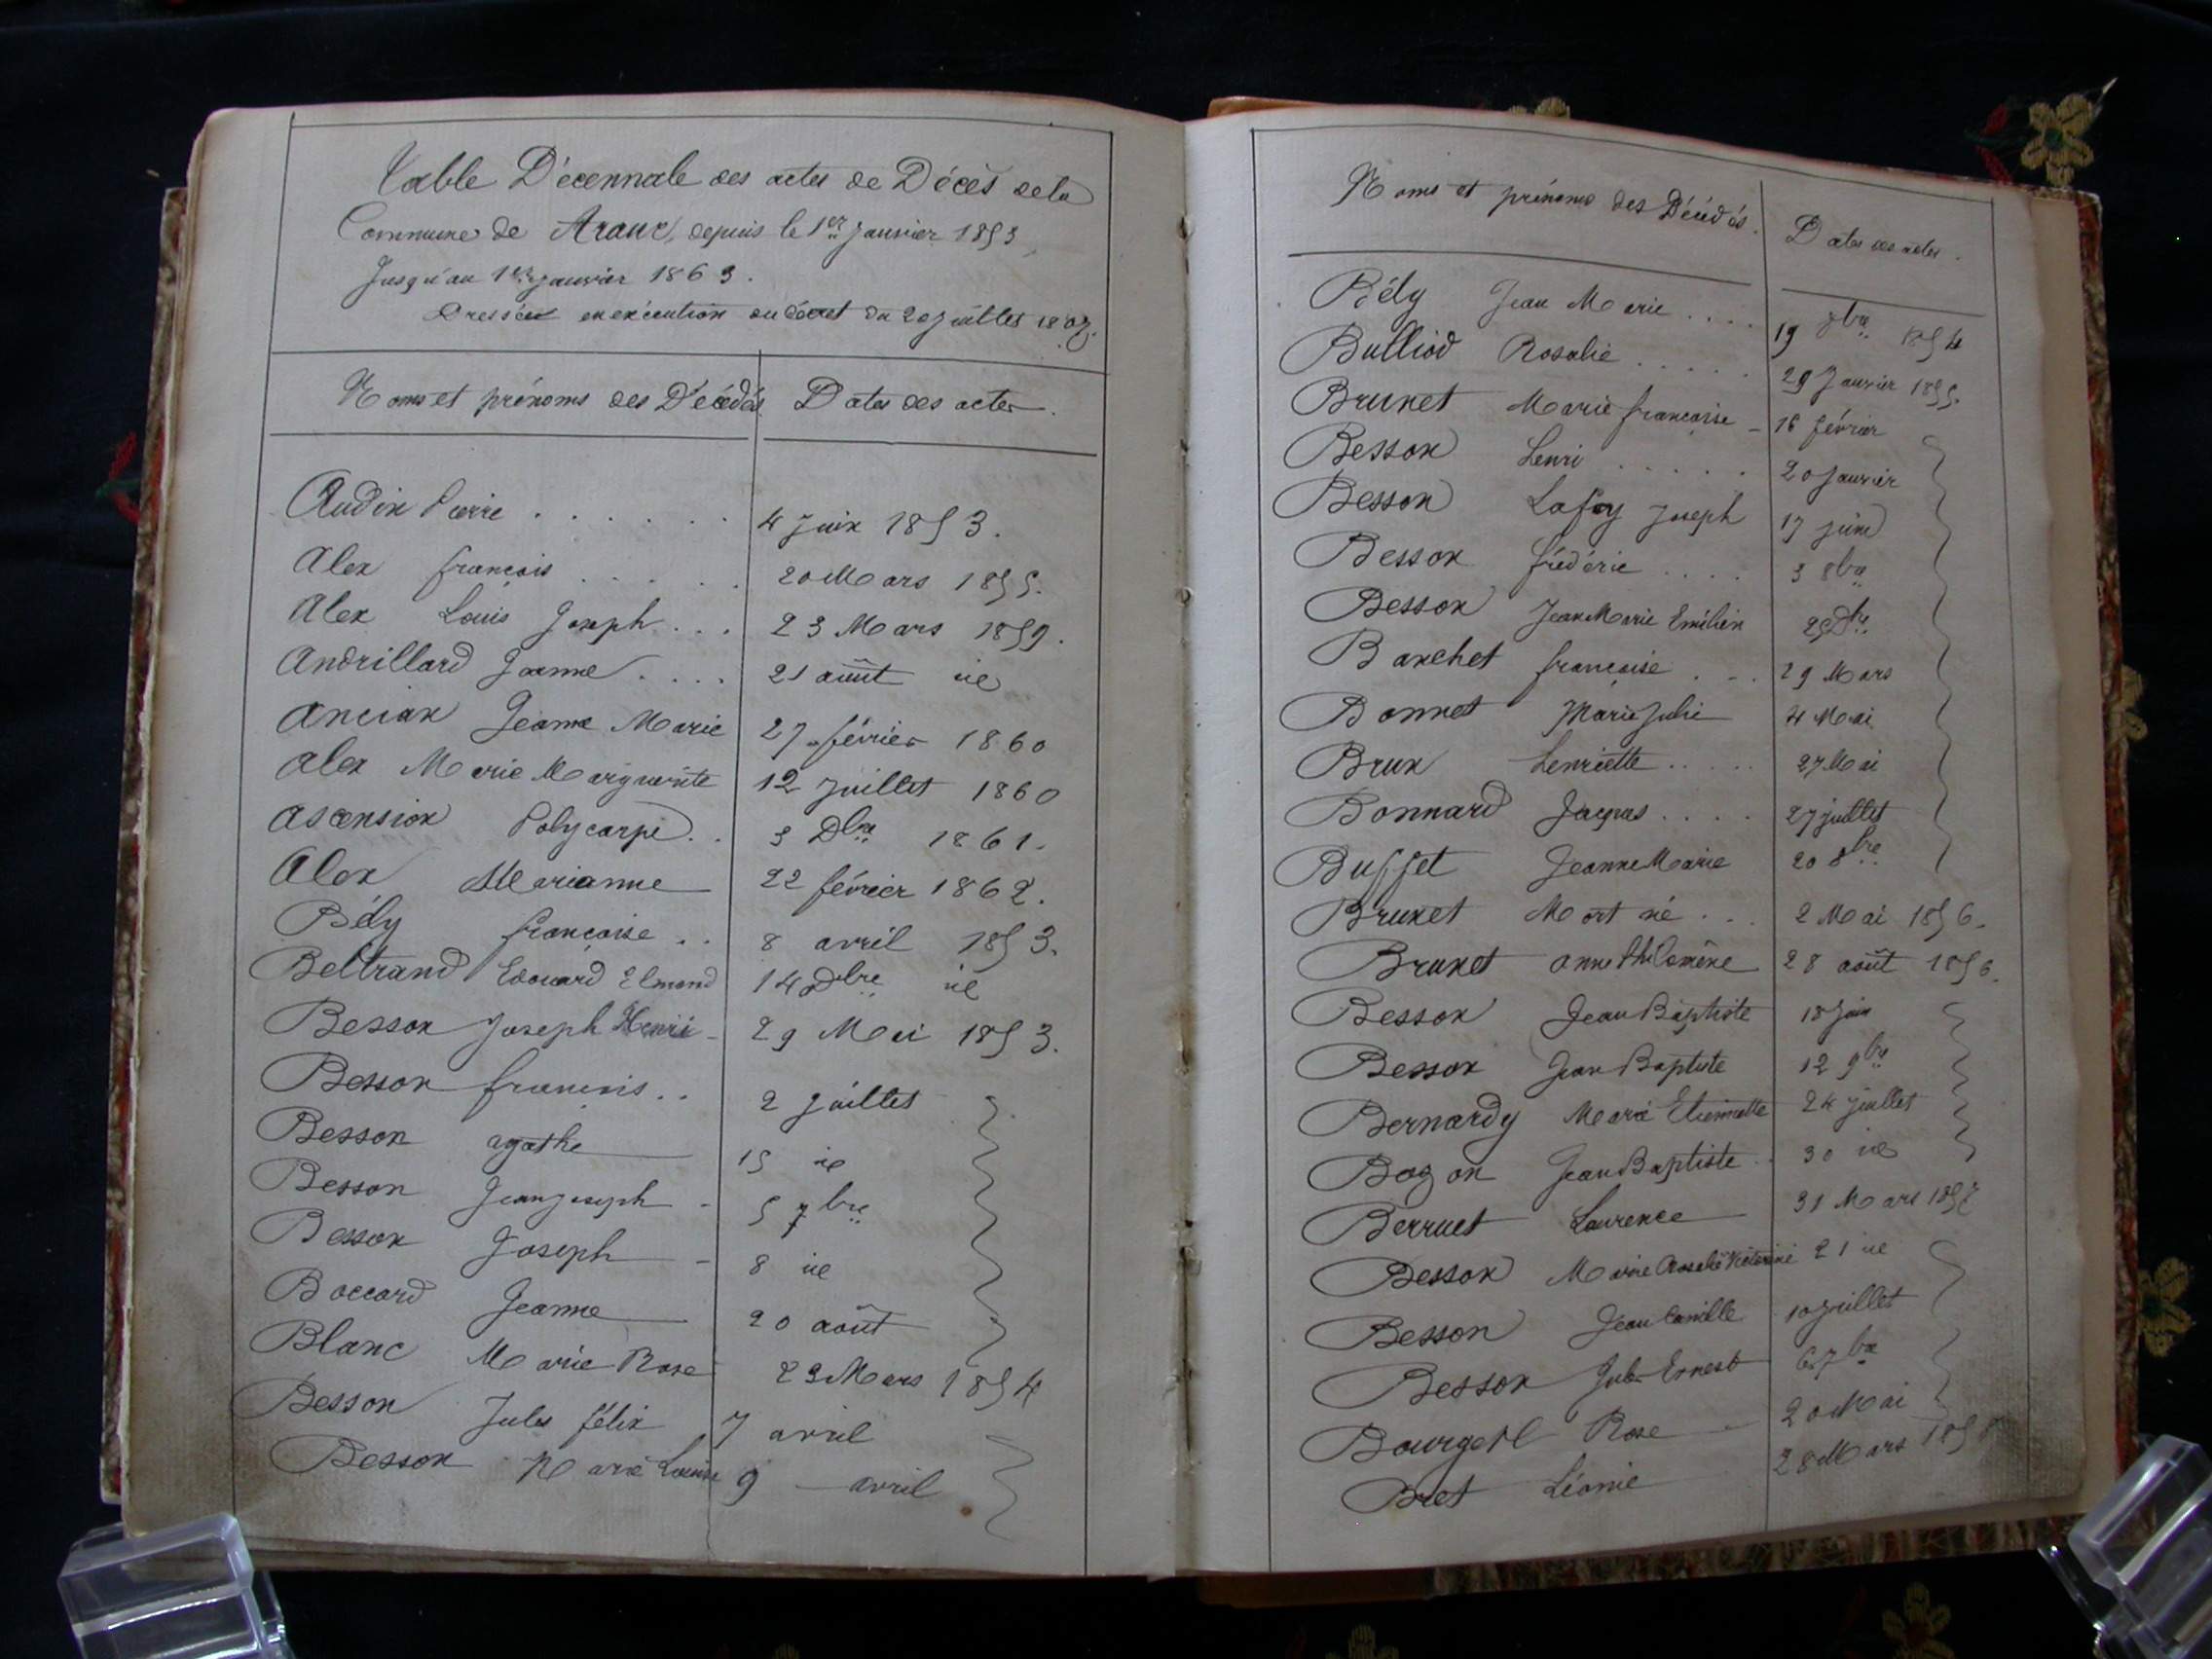 Table Décennale des actes de Décès de la
Commune de Aranc, depuis le 1er Janvier 1853
Jusqu'au 1er janvier 1863.
Dressée en exécution du décret du 20 juillet 1807.
Noms et prénoms des Décédés Dates des actes.
Audin Pierre . . . . . . . 4 Juin 1853.
Alex françois . . . . . 20 Mars 1855.
Alex Louis Joseph . . . 23 Mars 1859.
Andrillard Jeanne . . . . 21 août id
Ancian Jeanne Marie 27 février 1860
Alex Marie Marguerite 12 Juillet 1860
Ascension Polycarpe . . 3 Dbre 1861.
Alex Marianne 22 février 1862.
Bély françoise . . 8 avril 1853.
Beltrand Edouard Elmond 14 Dbre id
Besson Joseph Henri 29 Mai 1853.
Besson francois . . 2 Juillet
Besson agathe 15 id
Besson Jean joseph 5 7bre
Besson Joseph 8 id
Boccard Jeanne 20 août
Blanc Marie Rose 23 Mars 1854
Besson Jules félix 7 avril
Besson Marie Louise 9 avril
Noms et prénoms des Décédés. Dates des actes.
Bély Jean Marie . . . . 19 8bre 1854
Bulliod Rosalie . . . . . 29 Janvier 1855.
Brunet Marie françoise 16 février
Besson Henri . . . . . 20 Janvier
Besson Lafoy Joseph 17 juin
Besson frédéric . . . . 3 8bre
Besson Jean Marie Emilien Dbre
Banchet françoise . . . 29 Mars
Bonnet Marie Julie 4 Mai
Brun Henriette . . . . . 27 Mai
Bonnard Jacques . . . . 27 juillet
Buffet Jeanne Marie 20 8bre
Brunet Mort né . . . 2 Mai 1856.
Brunet anne Philomène 28 août 1856.
Besson Jean Baptiste 18 Juin
Besson Jean Baptiste 12 9bre
Bernardy Marie Etiennette 24 juillet
Bozon Jean Baptiste . . 30 id
Berruet Laurence 31 Mars 1857
Besson Marie Rosalie Victorine 21 id
Besson Jean Camille 10 juillet
Besson Jules Ernest 6 7bre
Bourget Rose 20 Mai
Bret Léonie 28 Mars 185